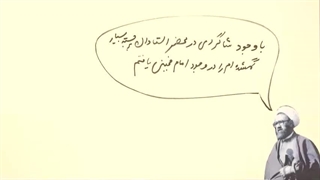 با وجود شاگردی در محضر استادان بسیار
گمشده ام را در وجود امام خمینی یافتم